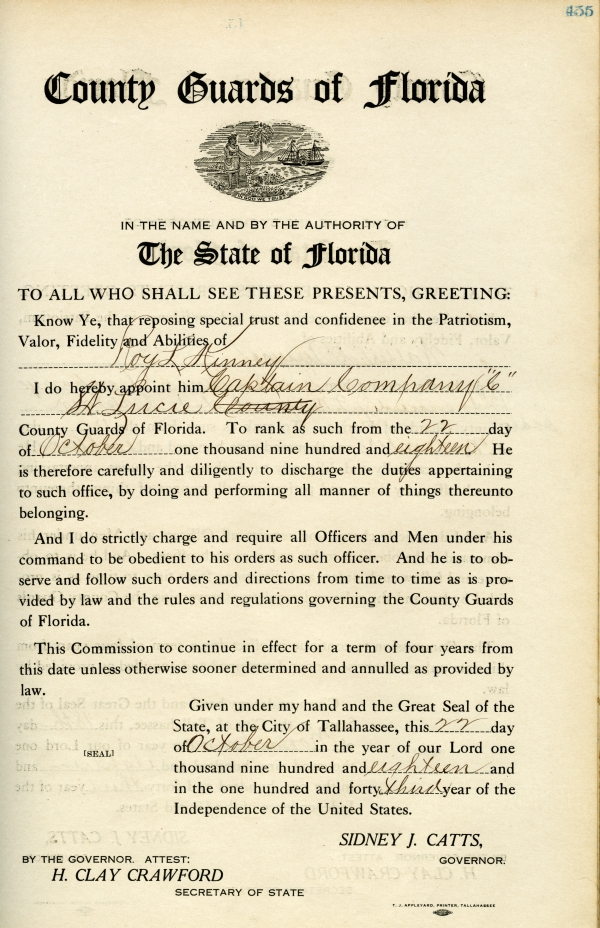 455
County Guards of Florida
IN GOD WE TRUST
IN THE NAME AND BY THE AUTHORITY OF
The State of Florida
TO ALL WHO SHALL SEE THESE PRESENTS, GREETING:
Know Ye, that reposing special trust and confidence in the Patriotism,
Valor, Fidelity and Abilities of
Roy L Kinney
I do hereby appoint him Captain Company "C"
St Lucie County
County Guards of Florida. To rank as such from the 22 day
of October one thousand nine hundred and eighteen He
is therefore carefully and diligently to discharge the duties appertaining
to such office, by doing and performing all manner of things thereunto
belonging.
And I do strictly charge and require all Officers and Men under his
command to be obedient to his orders as such officer. And he is to ob-
serve and follow such orders and directions from time to time as is pro-
vided by law and the rules and regulations governing the County Guards
of Florida.
This Commission to continue in effect for a term of four years from
this date unless otherwise sooner determined and annulled as provided by
law.
Given under my hand and the Great Seal of the
State, at the City of Tallahassee, this 22 day
of October in the year of our Lord one
[SEAL]
thousand nine hundred and eighteen and
in the one hundred and forty third year of the
Independence of the United States.
SIDNEY J. CATTS,
GOVERNOR.
BY THE GOVERNOR. ATTEST:
H. CLAY CRAWFORD
SECRETARY OF STATE
T. J. APPLEYARD, PRINTER, TALLAHASSEE